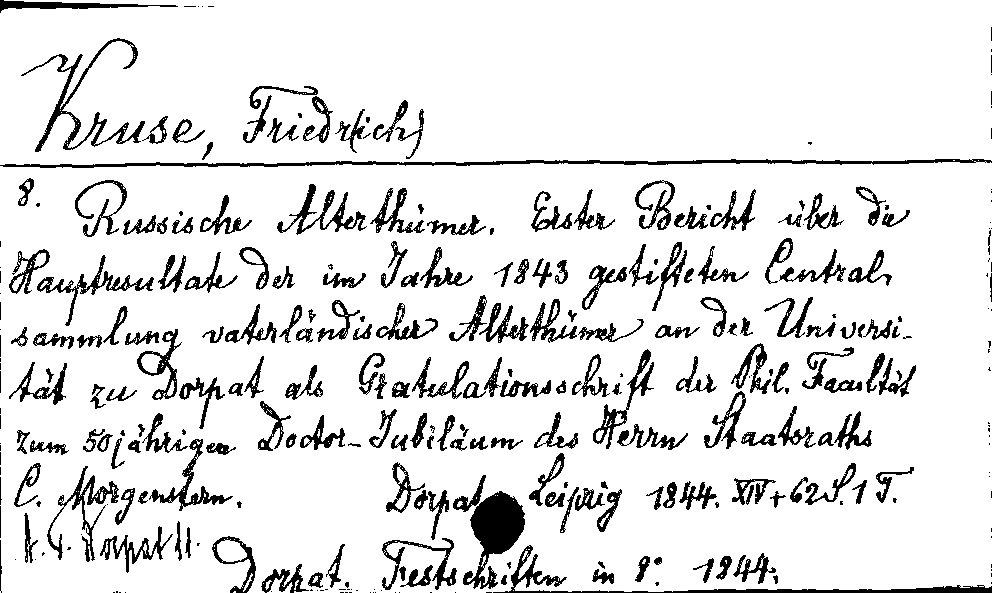 Kruse, Friedr(ich)
8.
Russische Alterthümer. Erster Bericht über die
Hauptresultate der im Jahre 1843 gestifteten Central-
sammlung vaterländischer Alterthümer an der Universi-
tät zu Dorpat als Gratulationsschrift der Phil. Facultät
zum 50jährigen Doctor-Jubiläum des Herrn Staatsraths
C. Morgenstern. Dorpat Leipzig 1844. XIV+62S. 1 T.
Dorpat
Dorpat. Festschriften in 8° 1844.